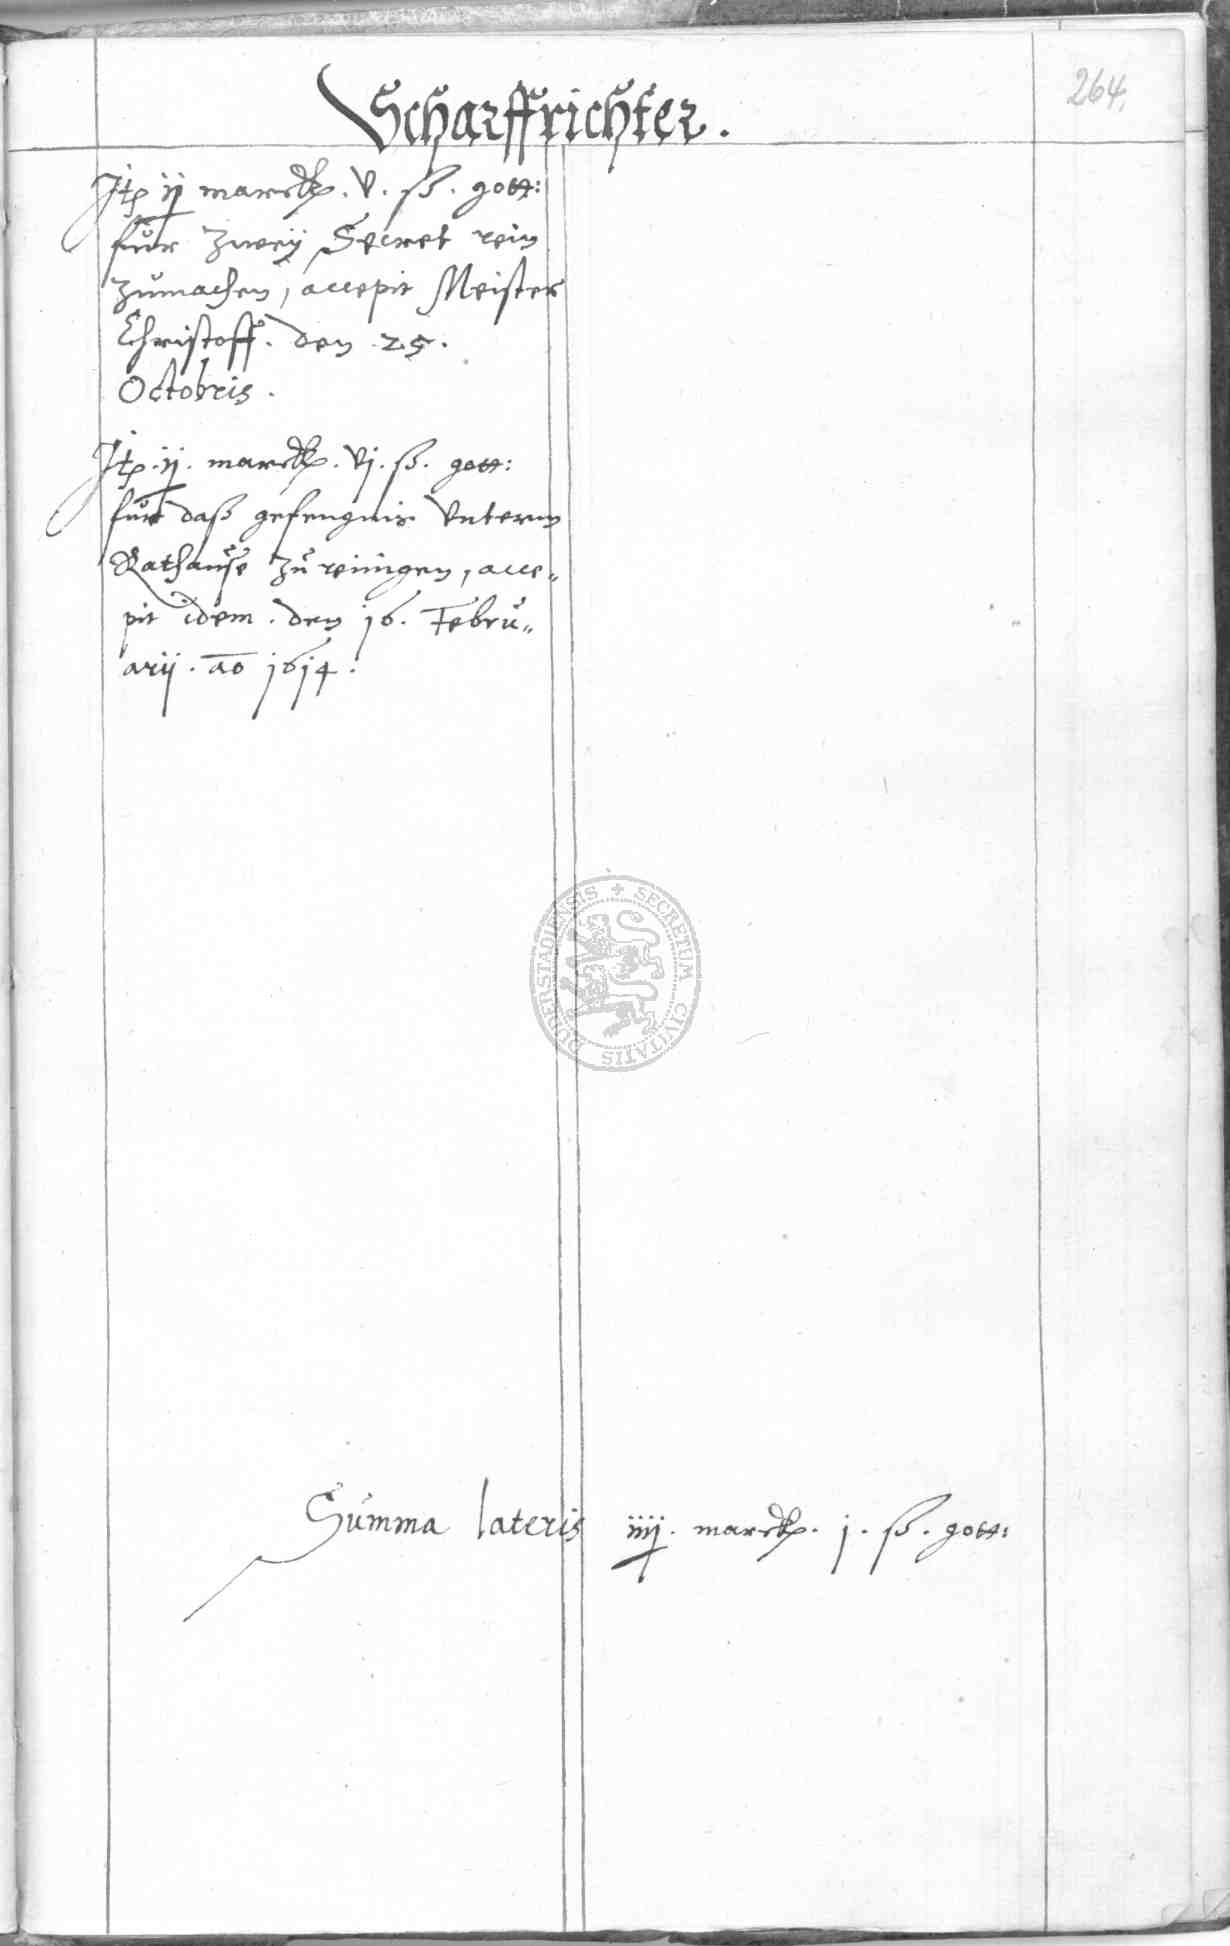 264.
Scharffrichter.
Jtem ij marck. v. ß. gott:
fur zweÿ Secret rein
zumachen, accepit Meister
Christoff. den 25.
Octobris.
Jtem .ij. marck. vj. ß. gott:
fur daß gefengnis unterm
Rathause zu reinigen, acce„
pit idem. den 16. Febru„
arij. ao 1614.
SECRETUM CIVITATIS DUDERSTADIENSIS
Summa lateris iiij. marck. j. ß. gott: